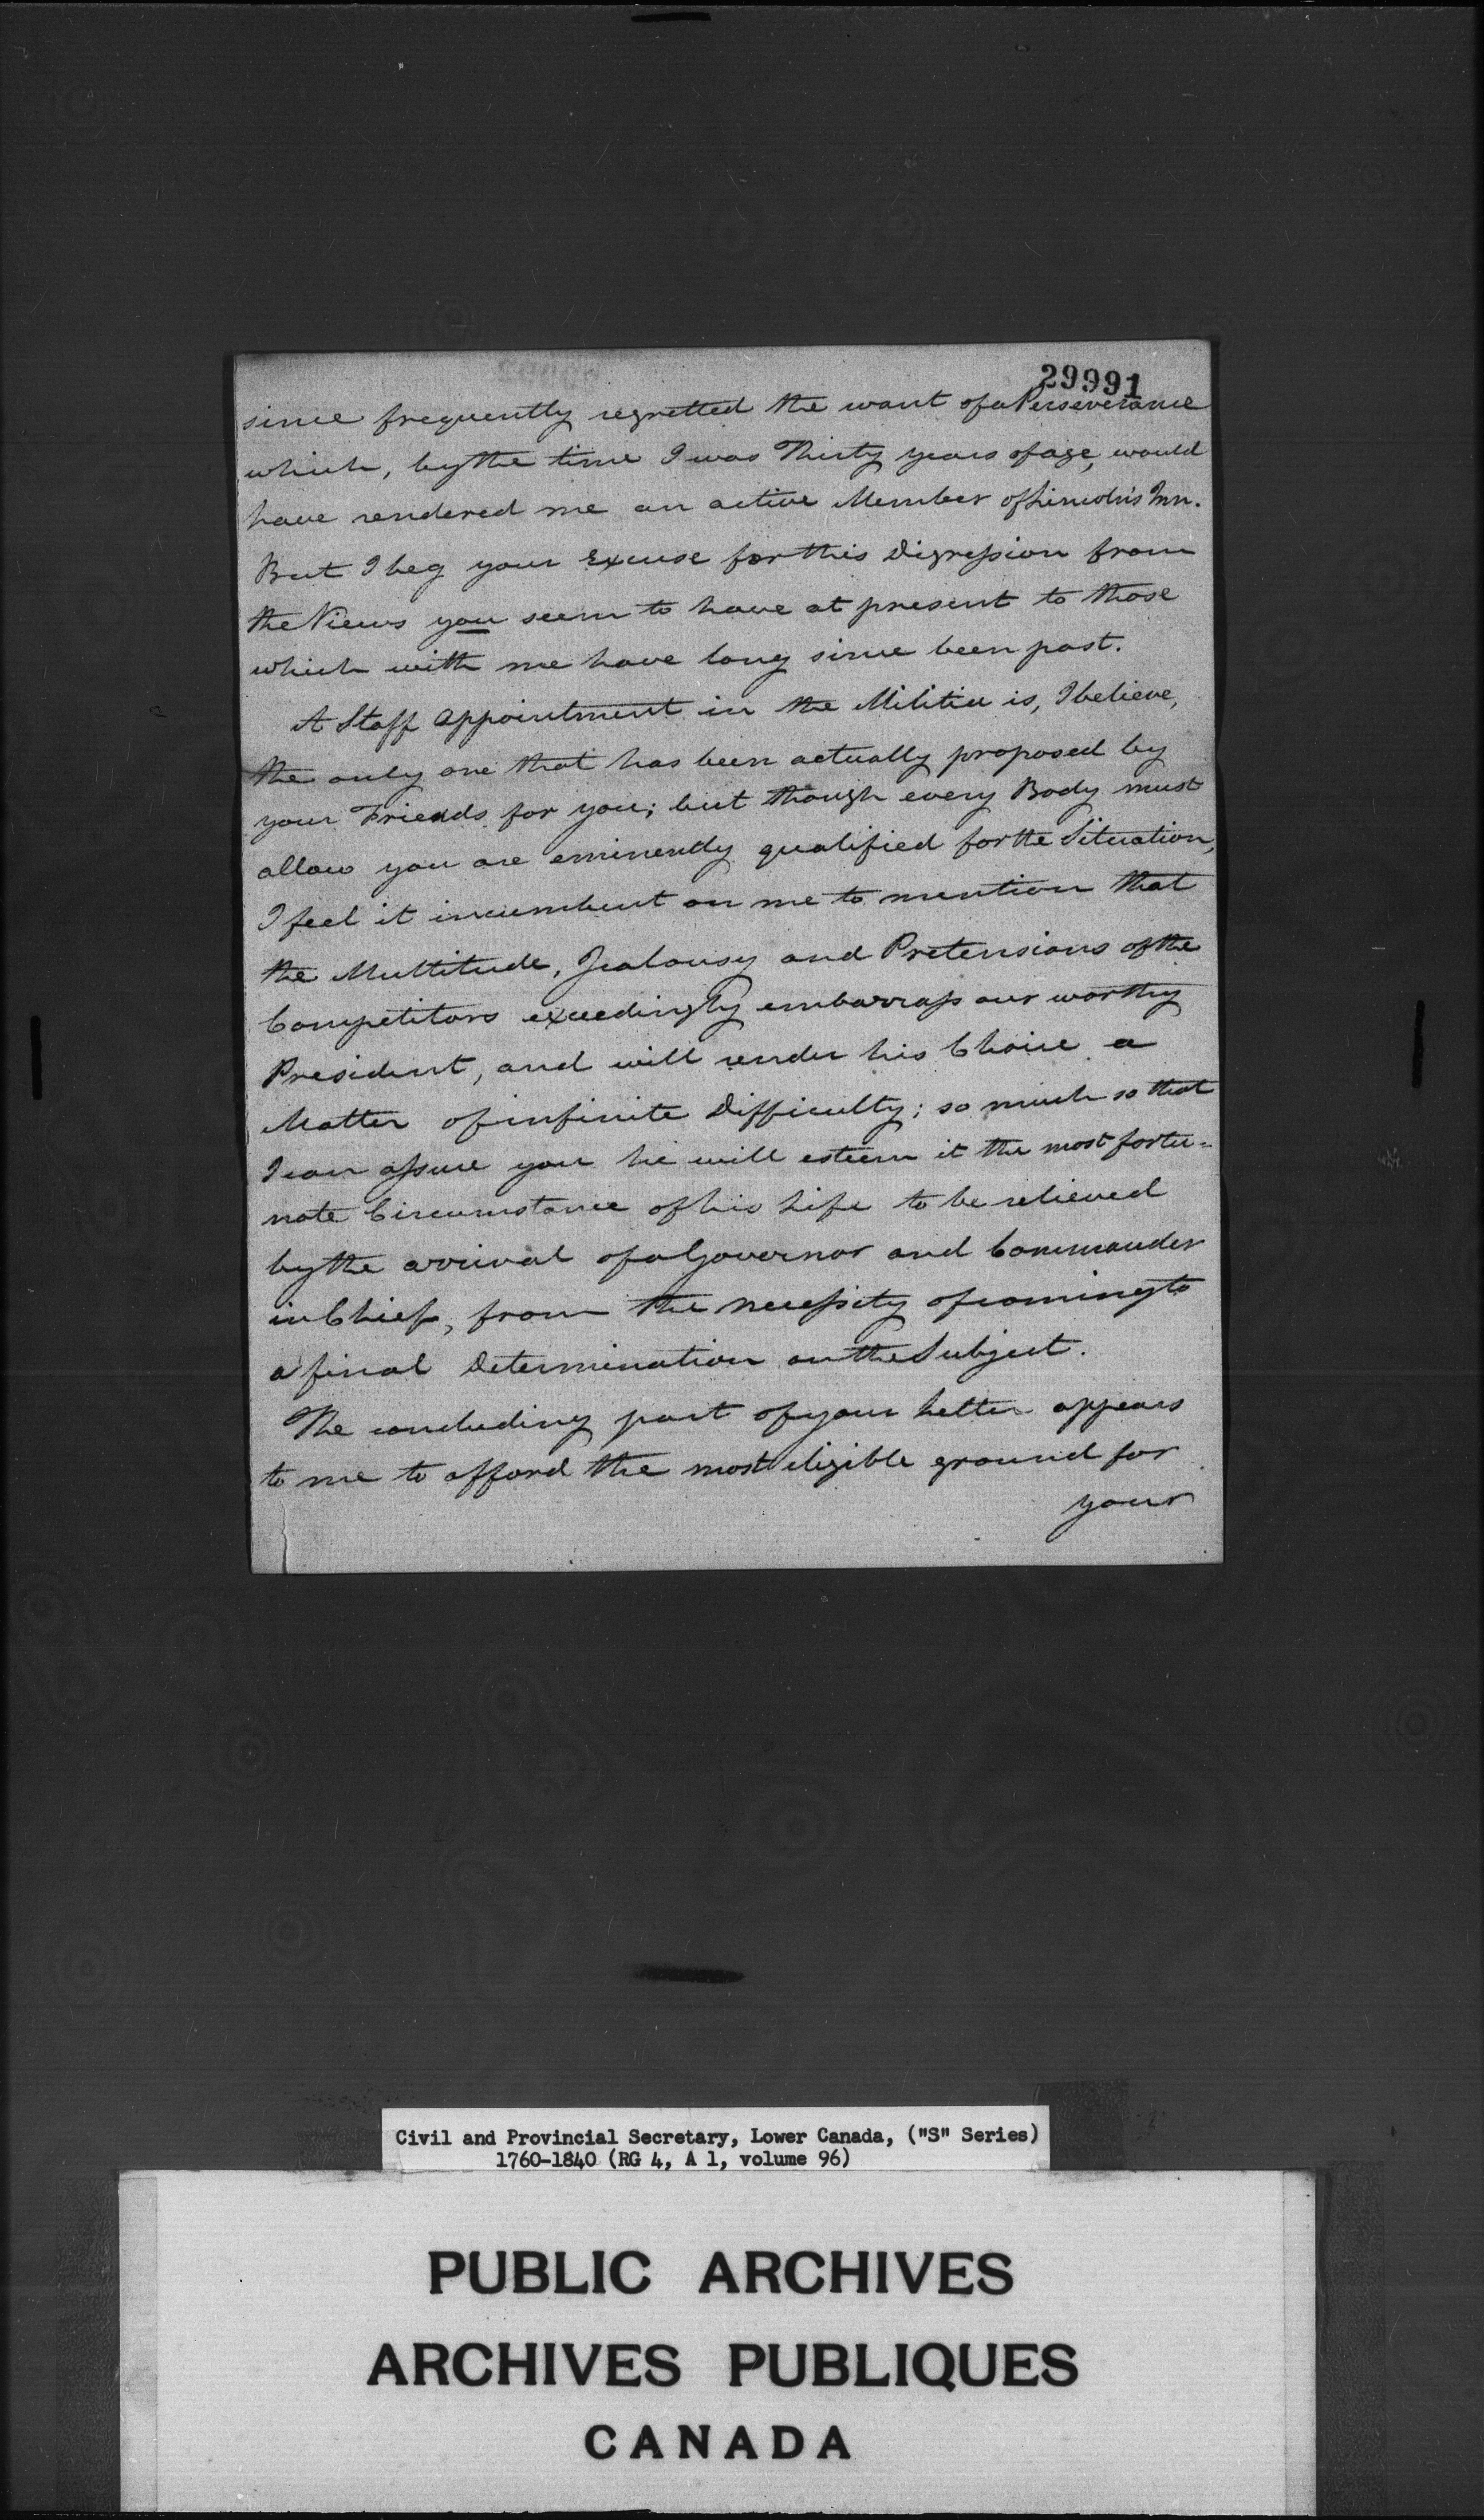 29991
since frequently regretted the want of a Perseverance
which, by the time I was Thirty years of age, would
have rendered me an active Member of Lincoln's Inn.
But I beg your Excuse for this Digression from
the Views you seem to have at present to those
which with me have long since been past.
A Staff Appointment in the Militia is, I believe,
the only one that has been actually proposed by
your Friends for you; but though every Body must
allow you are eminently qualified for the Situation,
I feel it incumbent on me to mention that
the Multitude, Jealousy and Pretensions of the
Competitors exceedingly embarrass our worthy
President, and will render his Choice a
Matter of infinite Difficulty; so much so that
I can assure you he will esteem it the most fortu=
nate Circumstance of his Life to be relieved
by the arrival of a Governor and Commander
in Chief, from the necessity of coming to
a final Determination on the Subject.
The concluding part of your Letter appears
to me to afford the most eligible ground for
your
Civil and Provincial Secretary, Lower Canada, ("S" Series)
1760-1840 (RG 4, A 1, volume 96)
PUBLIC ARCHIVES
ARCHIVES PUBLIQUES
CANADA